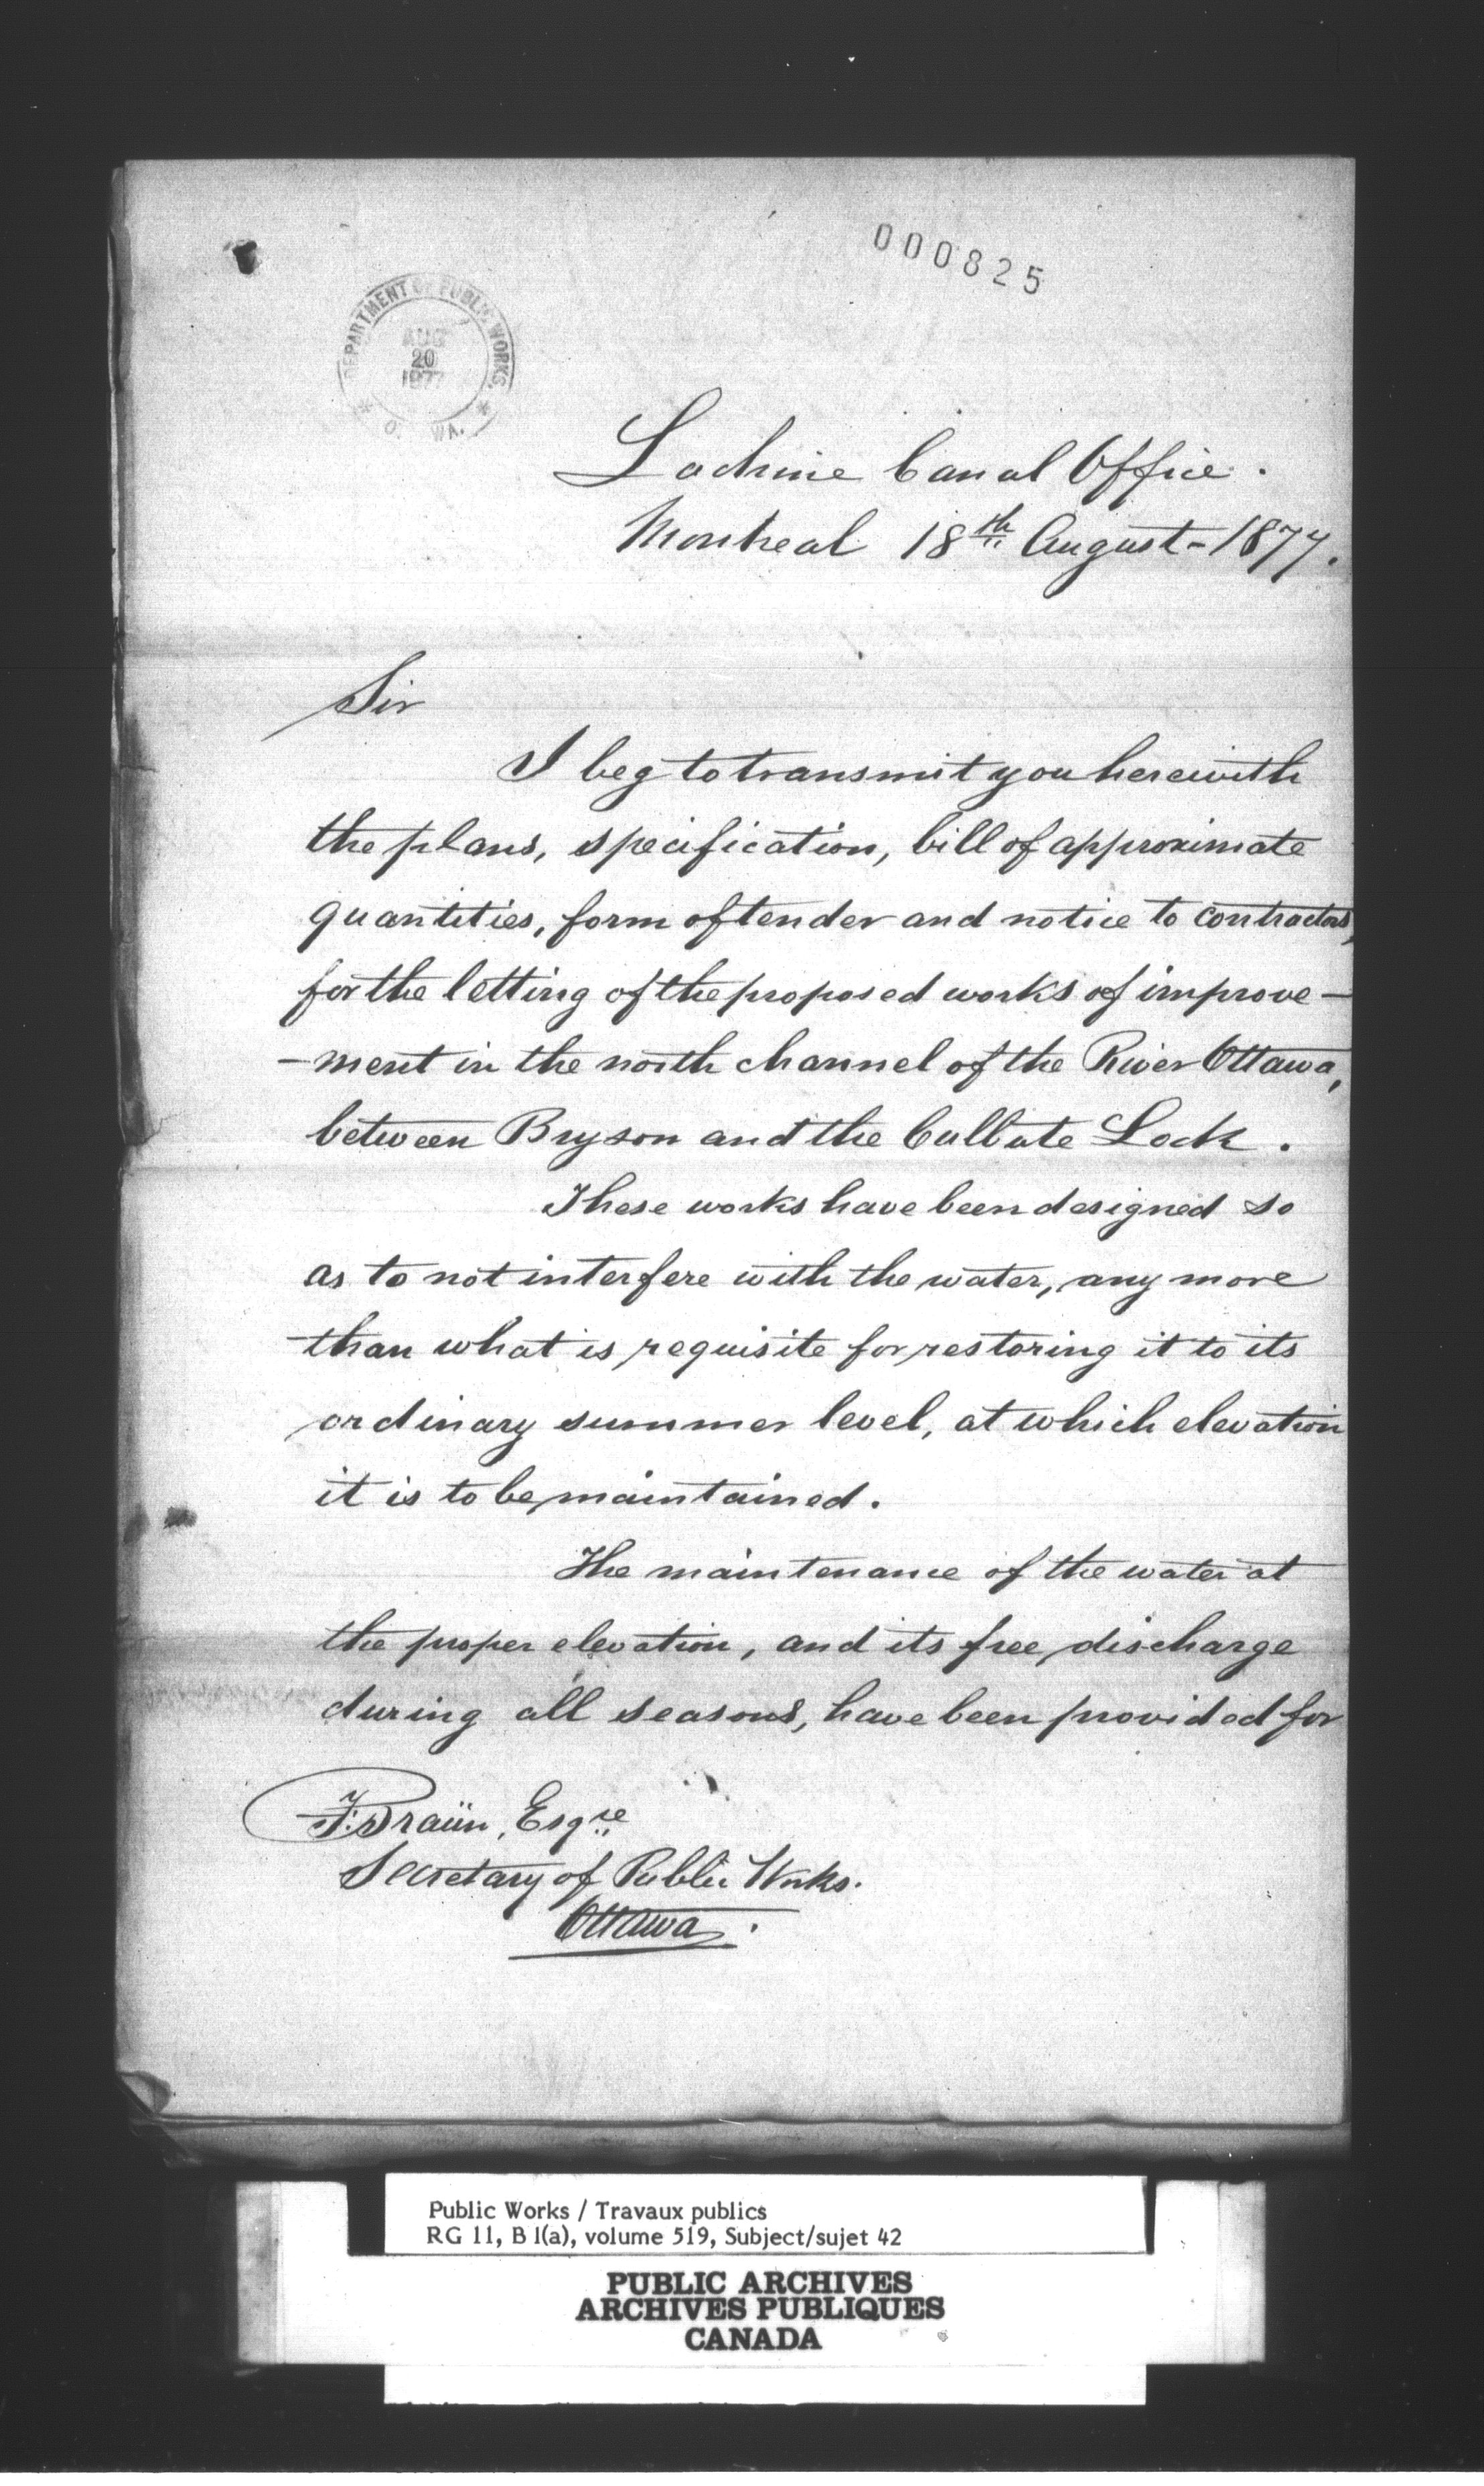 000825
DEPARTMENT OF PUBLIC WORKS.
AUG
20
1877
* O. WA. *
Lachine Canal Office.
Montreal 18th August - 1877.
Sir
I beg to transmit you herewith
the plans, specification, bill of approximate
quantities, form of tender and notice to contractors,
for the letting of the proposed works of improve-
-ment in the north channel of the River Ottawa,
between Bryson and the Culbute Lock.
These works have been designed so
as to not interfere with the water, any more
than what is requisite for restoring it to its
ordinary summer level, at which elevation
it is to be maintained.
The maintenance of the water at
the proper elevation, and its free discharge
during all seasons, have been provided for
F. Braün, Esqre
Secretary of Public Works.
Ottawa.
Public Works / Travaux publics
RG 11, B 1(a), volume 519, Subject/sujet 42
PUBLIC ARCHIVES
ARCHIVES PUBLIQUES
CANADA